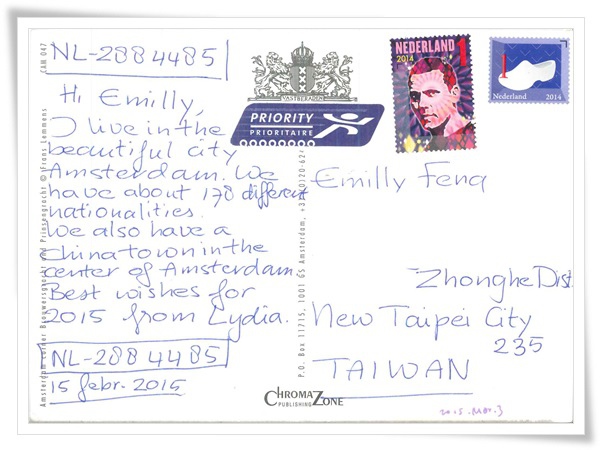 NL-2884485
Hi Emilly,
I live in the
beautiful city
Amsterdam. We
have about 178 different
nationalities.
We also have a
chinatown in the
center of Amsterdam.
Best wishes for
2015 from Lydia.
NL-2884485
15 febr. 2015
CAM 047
© Frans Lemmens
Amsterdam
P.O. Box 11715, 1001 GS Amsterdam, +31(0)20-62
PRIORITY
PRIORITAIRE
CHROMAZONE
PUBLISHING
NEDERLAND 1
2014
Nederland 2014
1
Emilly Feng
Zhonghe Dist.
New Taipei City
235
TAIWAN
2015.Mar.3